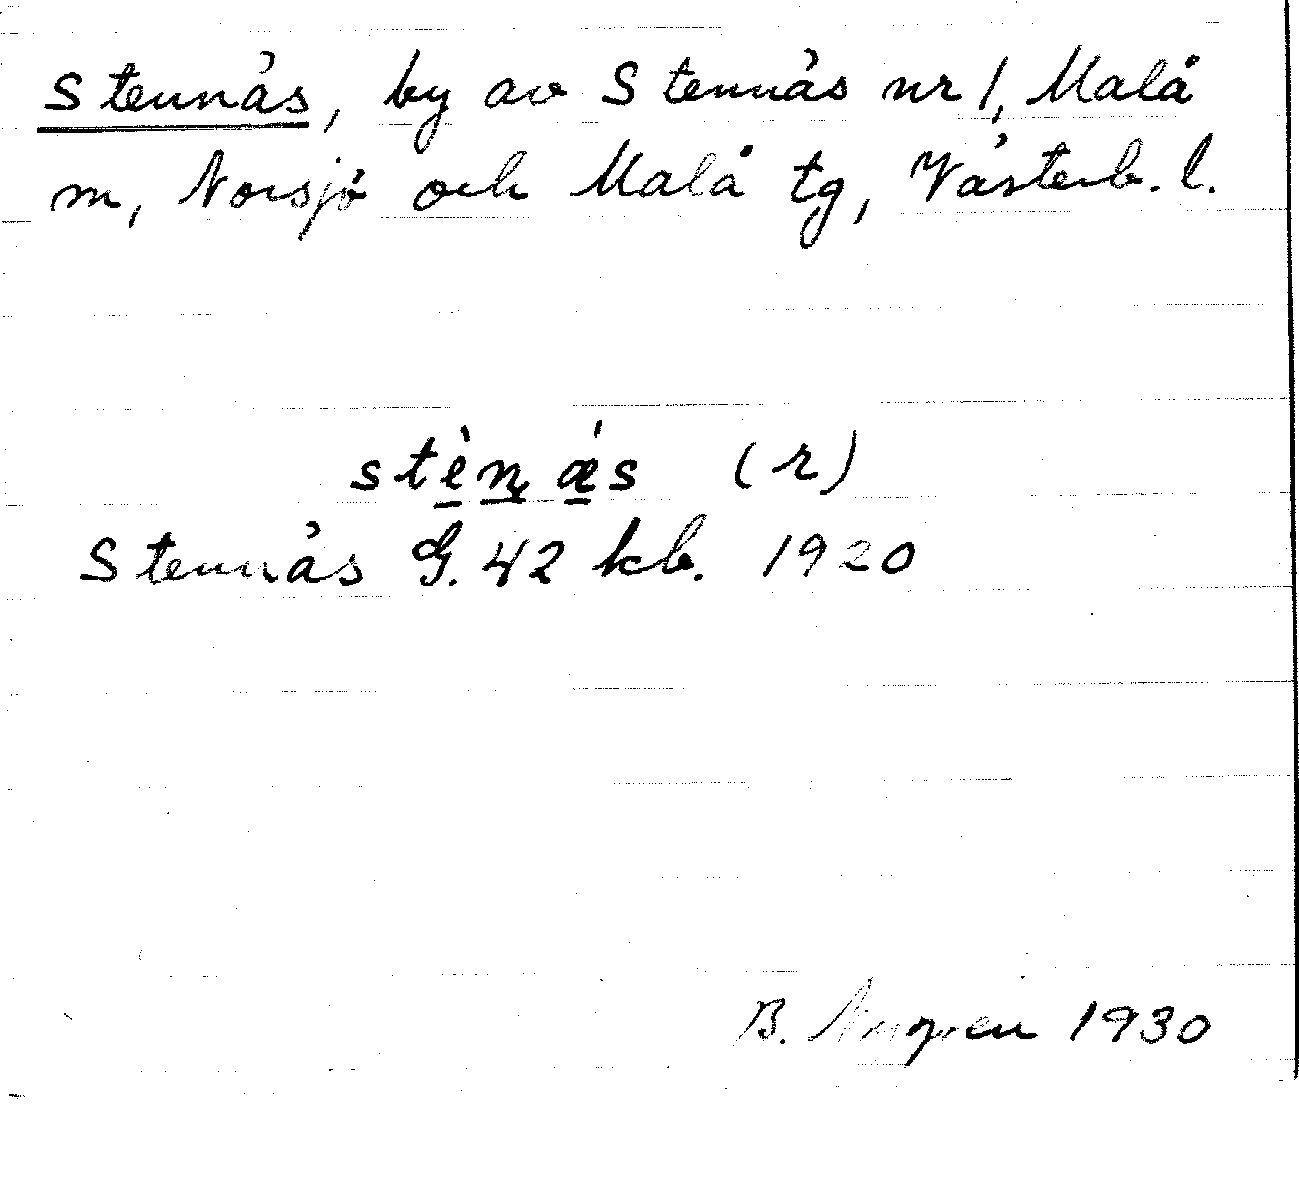 Stennäs, by av Stennäs nr 1, Malå
sn, Norsjö och Malå tg, Västerb. l.
stènǽs (r)
Stennäs G. 42 kb. 1920
B. 1930